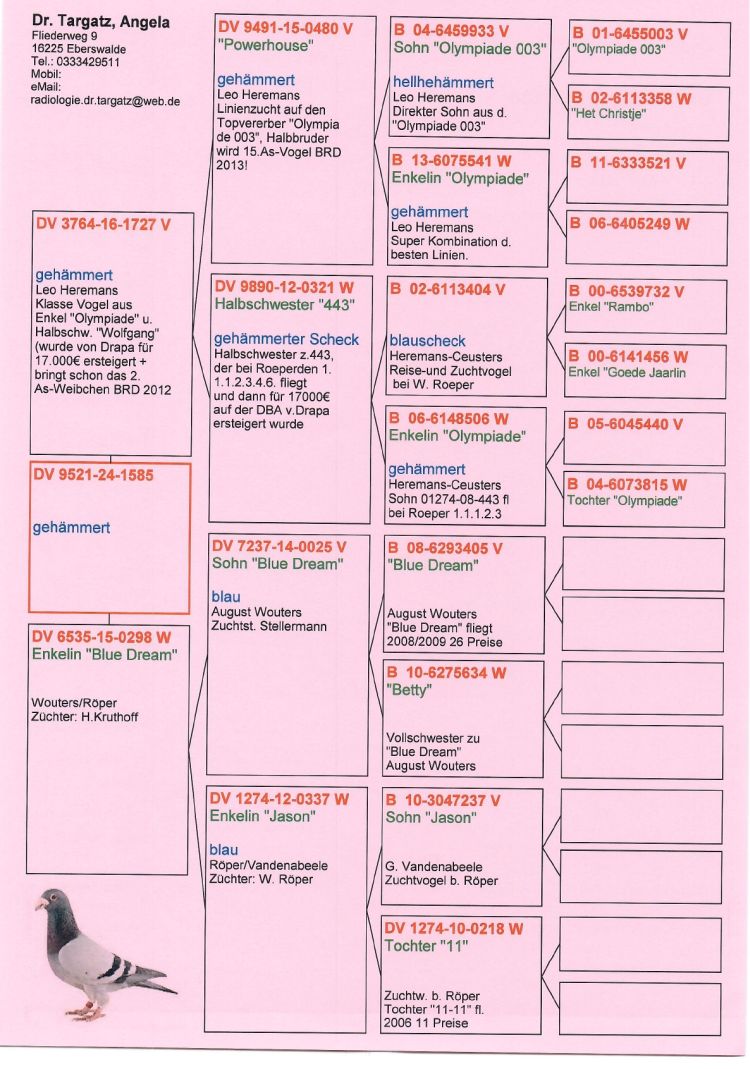 Dr. Targatz, Angela
Fliederweg 9
16225 Eberswalde
Tel.: 0333429511
Mobil:
eMail:
radiologie.dr.targatz@web.de
DV 3764-16-1727 V
gehämmert
Leo Heremans
Klasse Vogel aus
Enkel "Olympiade" u.
Halbschw. "Wolfgang"
(wurde von Drapa für
17.000€ ersteigert +
bringt schon das 2.
As-Weibchen BRD 2012
DV 9521-24-1585
gehämmert
DV 6535-15-0298 W
Enkelin "Blue Dream"
Wouters/Röper
Züchter: H.Kruthoff
DV 9491-15-0480 V
"Powerhouse"
gehämmert
Leo Heremans
Linienzucht auf den
Topvererber "Olympia
de 003", Halbbruder
wird 15.As-Vogel BRD
2013!
DV 9890-12-0321 W
Halbschwester "443"
gehämmerter Scheck
Halbschwester z.443,
der bei Roeperden 1.
1.1.2.3.4.6. fliegt
und dann für 17000€
auf der DBA v.Drapa
ersteigert wurde
DV 7237-14-0025 V
Sohn "Blue Dream"
blau
August Wouters
Zuchtst. Stellermann
DV 1274-12-0337 W
Enkelin "Jason"
blau
Röper/Vandenabeele
Züchter: W. Röper
B 04-6459933 V
Sohn "Olympiade 003"
hellhehämmert
Leo Heremans
Direkter Sohn aus d.
"Olympiade 003"
B 13-6075541 W
Enkelin "Olympiade"
gehämmert
Leo Heremans
Super Kombination d.
besten Linien.
B 02-6113404 V
blauscheck
Heremans-Ceusters
Reise-und Zuchtvogel
bei W. Roeper
B 06-6148506 W
Enkelin "Olympiade"
gehämmert
Heremans-Ceusters
Sohn 01274-08-443 fl
bei Roeper 1.1.1.2.3
B 08-6293405 V
"Blue Dream"
August Wouters
"Blue Dream" fliegt
2008/2009 26 Preise
B 10-6275634 W
"Betty"
Vollschwester zu
"Blue Dream"
August Wouters
B 10-3047237 V
Sohn "Jason"
G. Vandenabeele
Zuchtvogel b. Röper
DV 1274-10-0218 W
Tochter "11"
Zuchtw. b. Röper
Tochter "11-11" fl.
2006 11 Preise
B 01-6455003 V
"Olympiade 003"
B 02-6113358 W
"Het Christje"
B 11-6333521 V
B 06-6405249 W
B 00-6539732 V
Enkel "Rambo"
B 00-6141456 W
Enkel "Goede Jaarlin
B 05-6045440 V
B 04-6073815 W
Tochter "Olympiade"